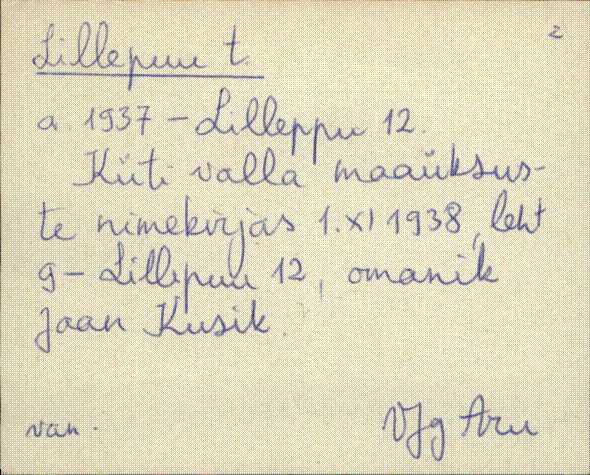 2
Lillepuu t.
a. 1937 - Lilleppu 12.
Küti valla maaüksus-
te nimekirjas 1.XI 1938, leht
9 - Lillepuu 12, omanik
Jaan Kusik.
van. VJg Aru